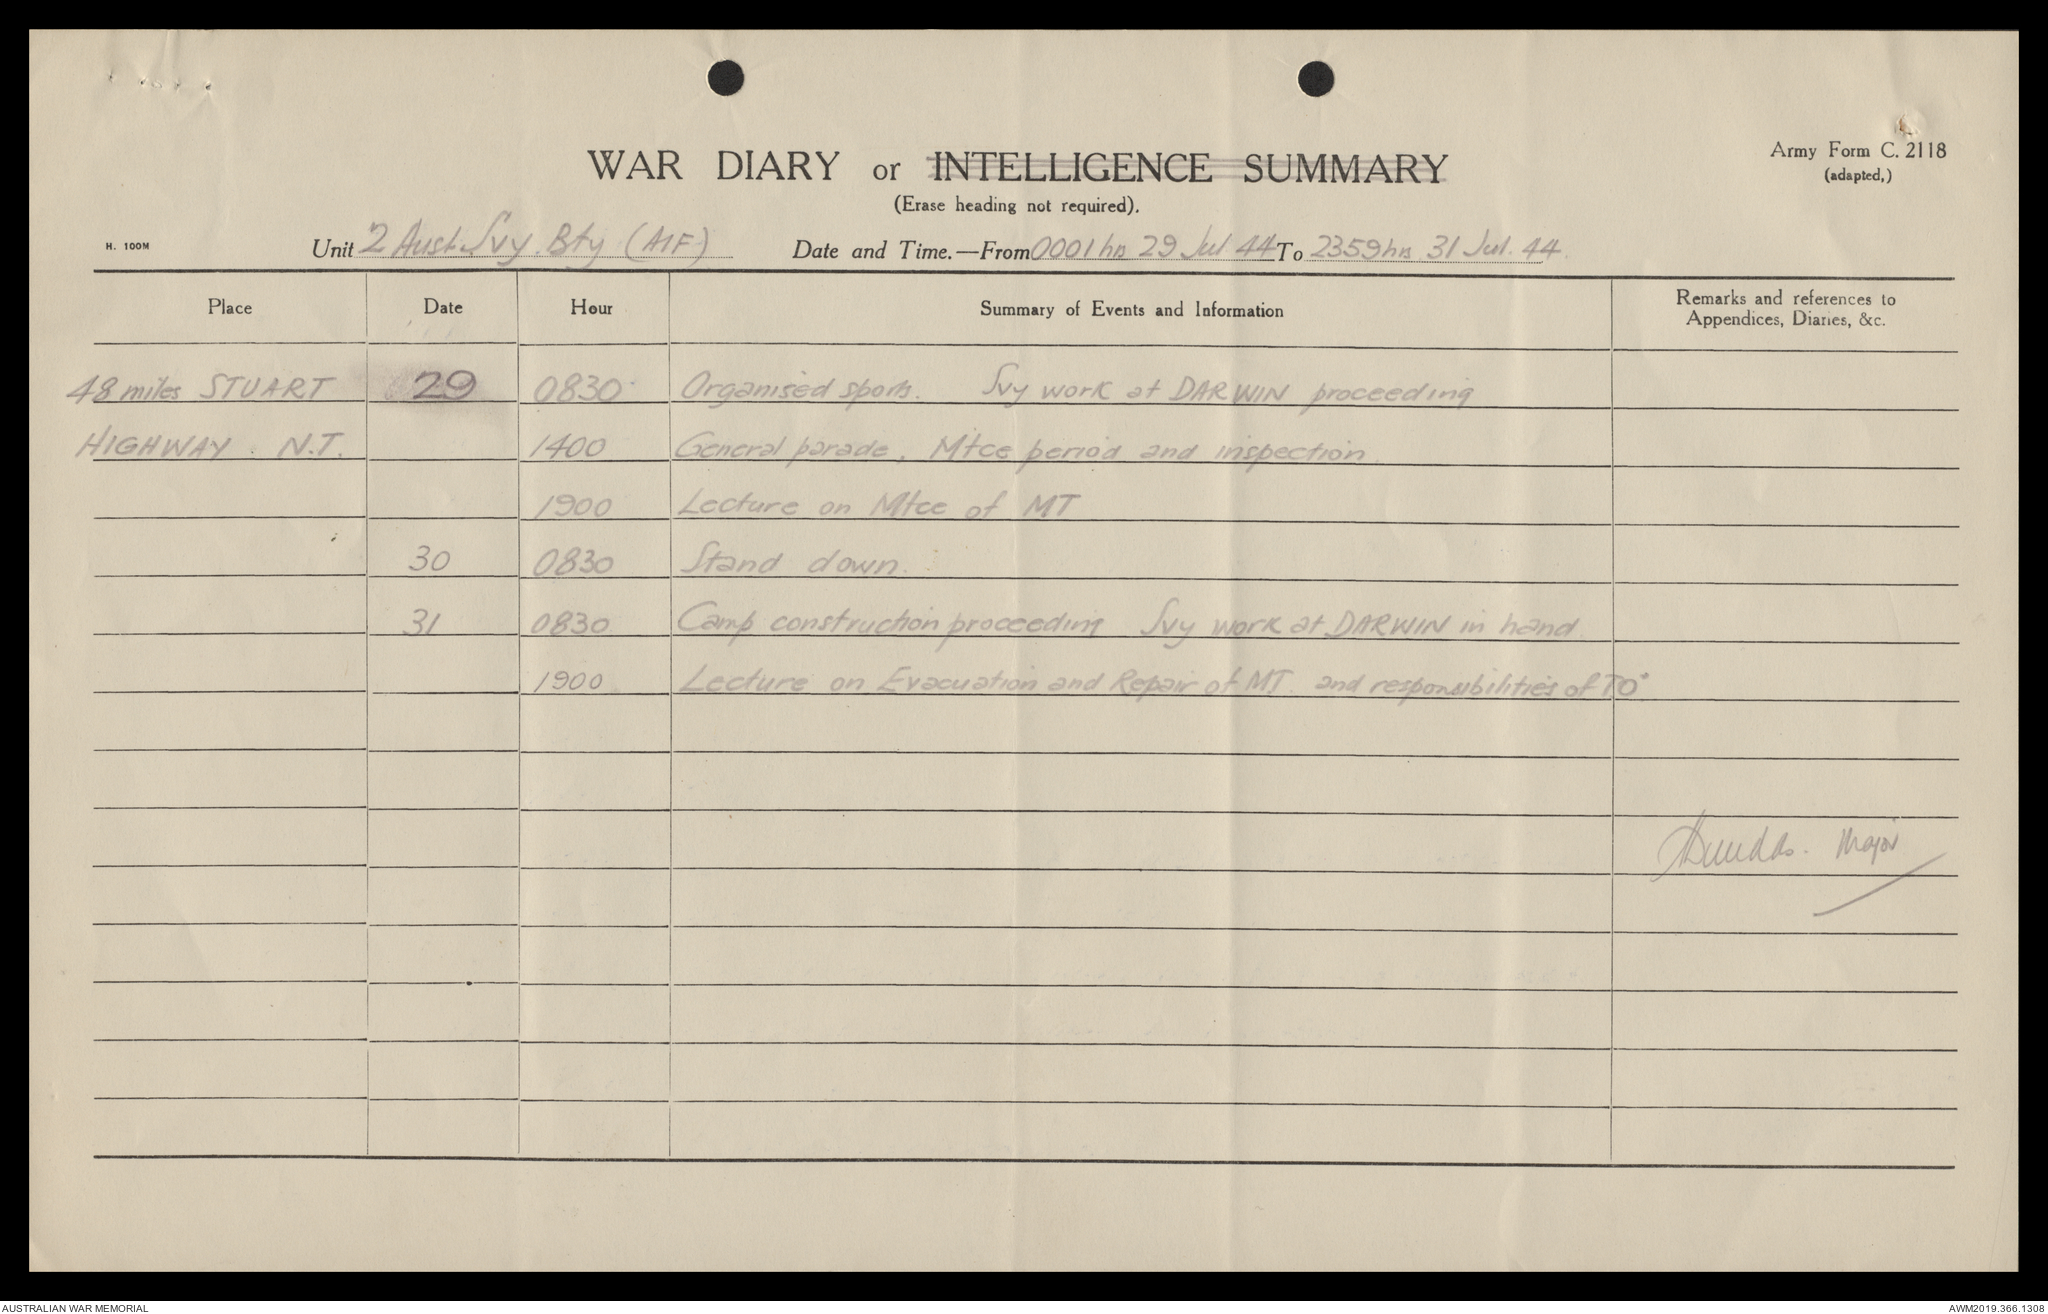 Army Form C. 2118
(adapted,)
WAR DIARY or INTELLIGENCE SUMMARY
(Erase heading not required).
H. 100M
Unit 2 Aust. Svy. Bty (AIF) Date and Time.—From 0001 hrs 29 Jul 44 To 2359 hrs 31 Jul. 44.
Place Date Hour Summary of Events and Information Remarks and references to
Appendices, Diaries, &c.
48 miles STUART 29 0830 Organised sports. Svy work at DARWIN proceeding
HIGHWAY. N.T. 1400 General parade, Mtce period and inspection
1900 Lecture on Mtce of MT
30 0830 Stand down.
31 0830 Camp construction proceeding Svy work at DARWIN in hand
1900 Lecture on Evacuation and Repair of MT and responsibilities of TOs
Major
AUSTRALIAN WAR MEMORIAL AWM2019.366.1308